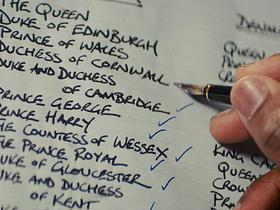 THE QUEEN
DUKE OF EDINBURGH
PRINCE OF WALES
DUCHESS OF CORNWALL
DUKE AND DUCHESS
OF CAMBRIDGE
PRINCE GEORGE
PRINCE HARRY
THE COUNTESS OF WESSEX
THE PRINCE ROYAL
DUKE OF GLOUCESTER
DUKE AND DUCHESS
OF KENT
DENM
QUEEN
PRINC
CR
KING CA
QUEEN
CROW
PR
QUE